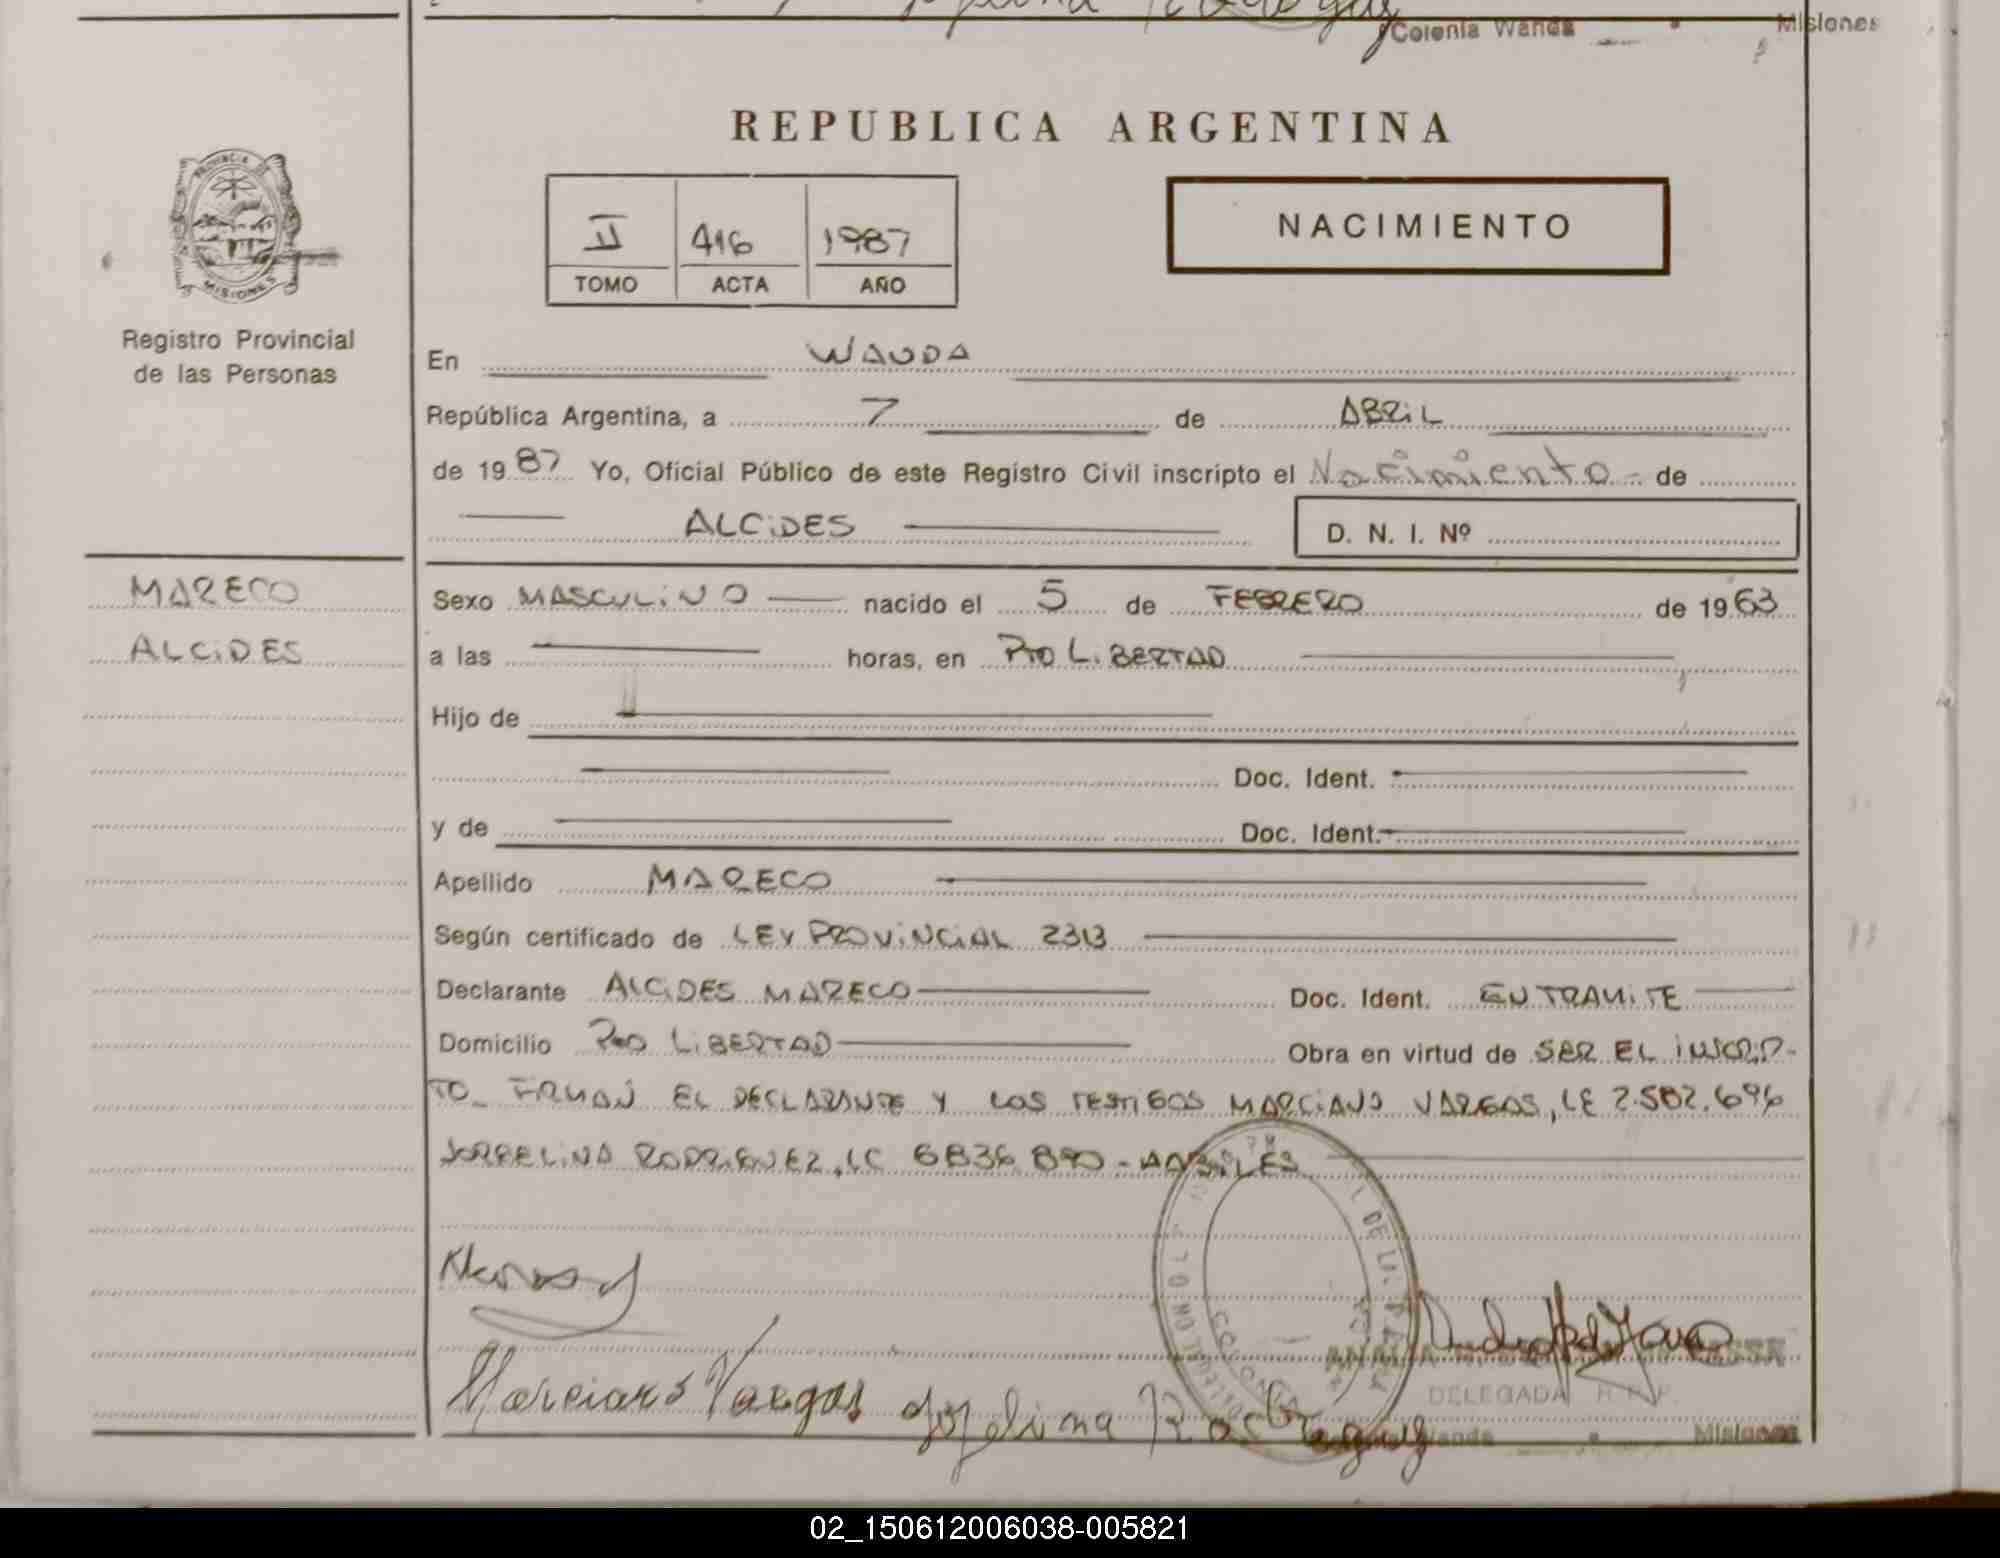 Colonia Wanda Misiones
REPUBLICA ARGENTINA
PROVINCIA
MISIONES
Registro Provincial
de las Personas
II 416 1987
TOMO ACTA AÑO
NACIMIENTO
En WANDA
República Argentina, a 7 de ABRIL
de 1987 Yo, Oficial Público de este Registro Civil inscripto el Nacimiento - de
ALCIDES D. N. I. Nº
MARECO
ALCIDES
Sexo MASCULINO nacido el 5 de FEBRERO de 1963
a las horas, en Pto LIBERTAD
Hijo de
Doc. Ident.
y de Doc. Ident.
Apellido MARECO
Según certificado de LEY PROVINCIAL 2313
Declarante ALCIDES MARECO Doc. Ident. EN TRAMITE
Domicilio Pto LIBERTAD Obra en virtud de SER EL INSCRIP-
TO_ FIRMAN EL DECLARANTE Y LOS TESTIGOS MARCIANO VARGAS, LE 2.582.696
JORGELINA RODRIGUEZ, LC 6836890 - AABILES
Marciano Vargas Jorgelina Rodriguez
DELEGADA R. P. P.
Wanda Misiones
02_150612006038-005821